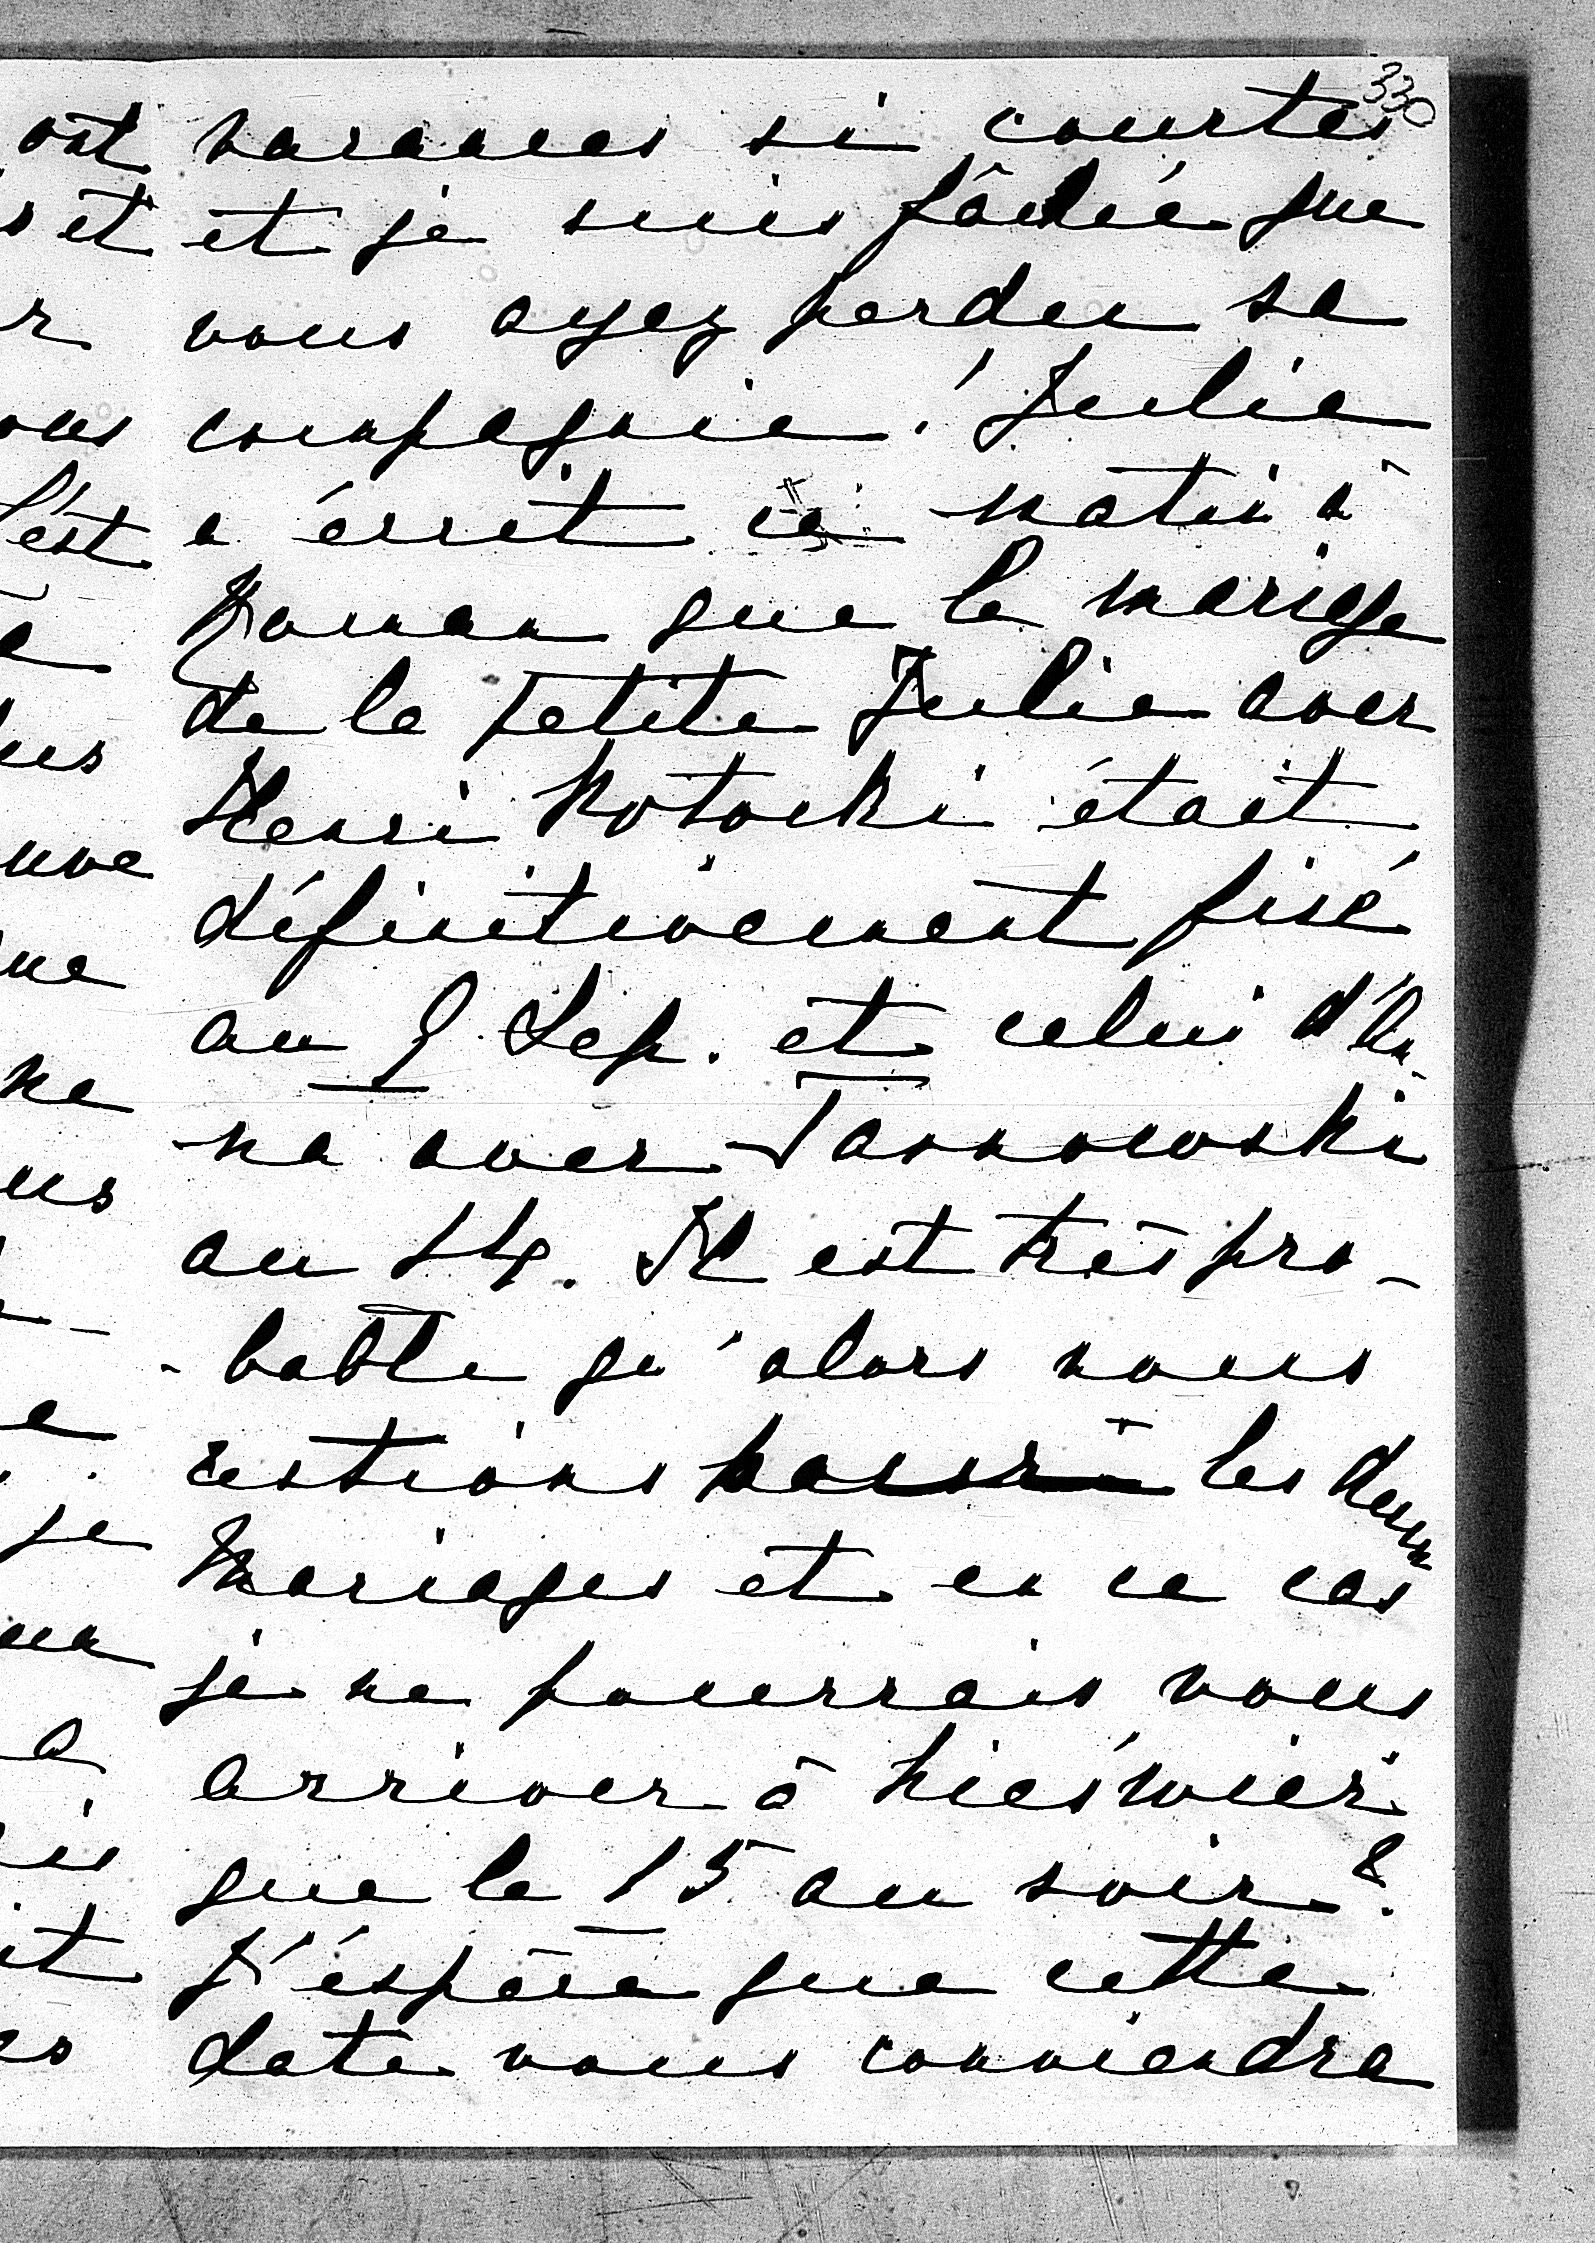 330
vacances si courtes
et je suis fâchée que
vous ayez perdu sa
compagnie! Julie
a écrit ce matin à
Roman que le mariage
de la petite Julie avec
Henri Potocki était
définitivement fixé
au 9 Sep. et celui d'An-
na avec Tarnowski
au 14. Il est très pro-
-bable qu'alors nous
restions pour les deux
mariages et en ce cas
je ne pourrais vous
arriver à Nieśwież
que le 15 au soir?
J'éspère que cette
date vous conviendra
ont
et
ous
ne
je